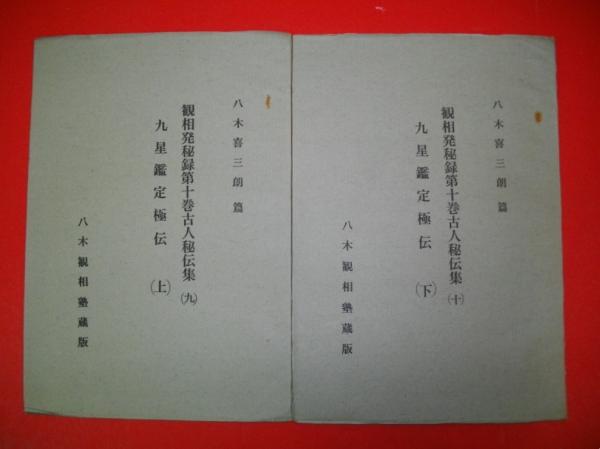 八木喜三朗篇
観相発秘録第十巻古人秘伝集(九)
九星鑑定極伝(上)
八木観相塾蔵版
八木喜三朗篇
観相発秘録第十巻古人秘伝集(十)
九星鑑定極伝(下)
八木観相塾蔵版